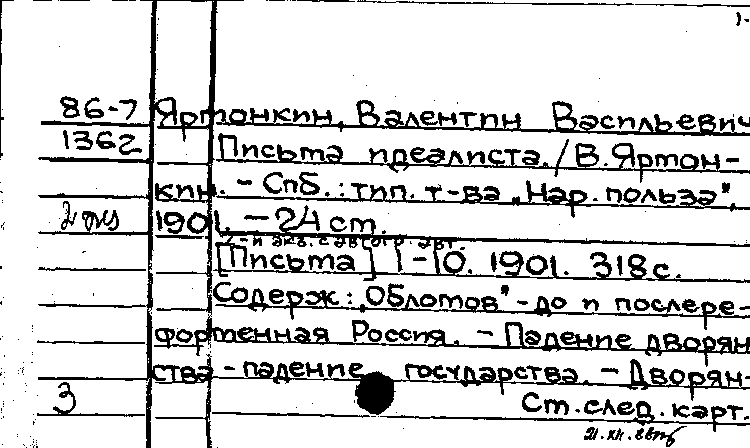 1-
86-7 Ярмонкин, Валентин Васильевич
1362 Письма идеалиста. / В. Ярмон-
кин. - Спб.: тип. т-ва "Нар. польза",
2 экз 1901. - 24 см.
2-й экз. с автогр. авт.
[Письма] 1-10. 1901. 318 с.
Содерж.: "Обломов" - до и послере-
форменная Россия. - Падение дворян
ства - падение государства. - Дворян-
3 Ст. след. карт.